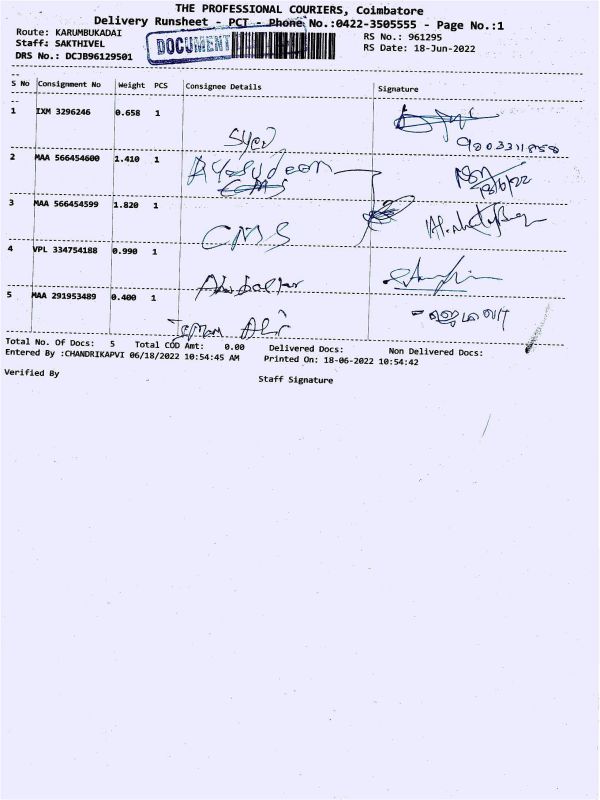 THE PROFESSIONAL COURIERS, Coimbatore
Delivery Runsheet - PCT - Phone No.:0422-3505555 - Page No.:1
Route: KARUMBUKADAI
RS No.: 961295
Staff: SAKTHIVEL
DOCUMENT
RS Date: 18-Jun-2022
DRS No.: DCJB96129501
S No Consignment No Weight PCS Consignee Details Signature
1 IXM 3296246 0.658 1
Syed
2 MAA 566454600 1.410 1
CMS
18/6/22
3 MAA 566454599 1.820 1
CMS
4 VPL 334754188 0.990 1
5 MAA 291953489 0.400 1
Total No. Of Docs: 5 Total COD Amt: 0.00 Delivered Docs: Non Delivered Docs:
Entered By :CHANDRIKAPVI 06/18/2022 10:54:45 AM Printed On: 18-06-2022 10:54:42
Verified By
Staff Signature